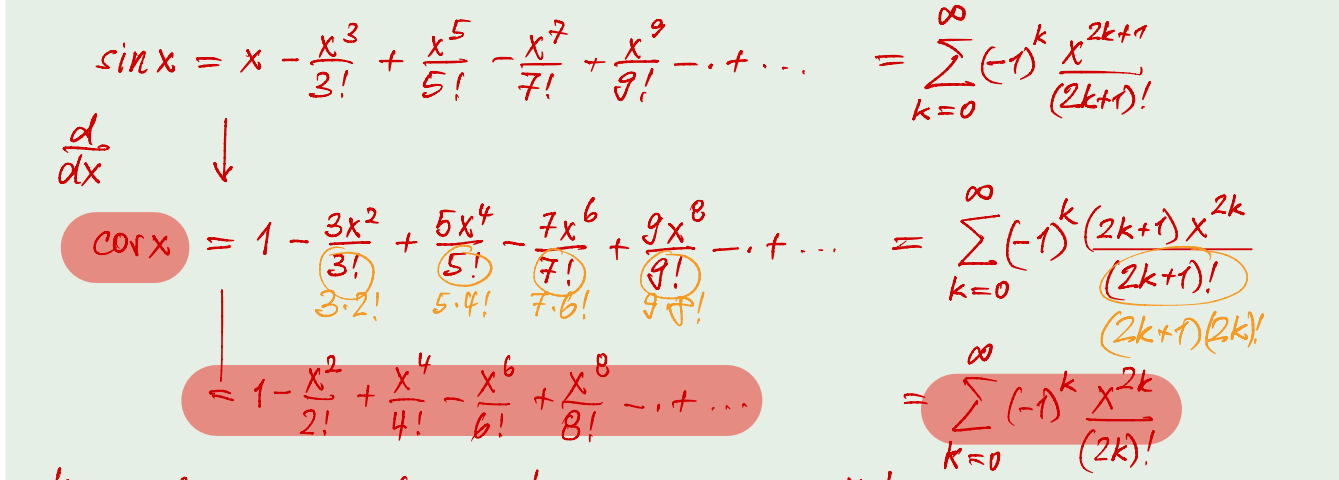 sin x = x - x^3/3! + x^5/5! - x^7/7! + x^9/9! - . + ... = ∑_{k=0}^{∞} (-1)^k x^{2k+1}/(2k+1)!
d/dx ↓
cos x = 1 - 3x^2/3! + 5x^4/5! - 7x^6/7! + 9x^8/9! - . + ... = ∑_{k=0}^{∞} (-1)^k (2k+1)x^{2k}/(2k+1)!
3·2! 5·4! 7·6! 9·8! (2k+1)(2k)!
= 1 - x^2/2! + x^4/4! - x^6/6! + x^8/8! - . + ... = ∑_{k=0}^{∞} (-1)^k x^{2k}/(2k)!